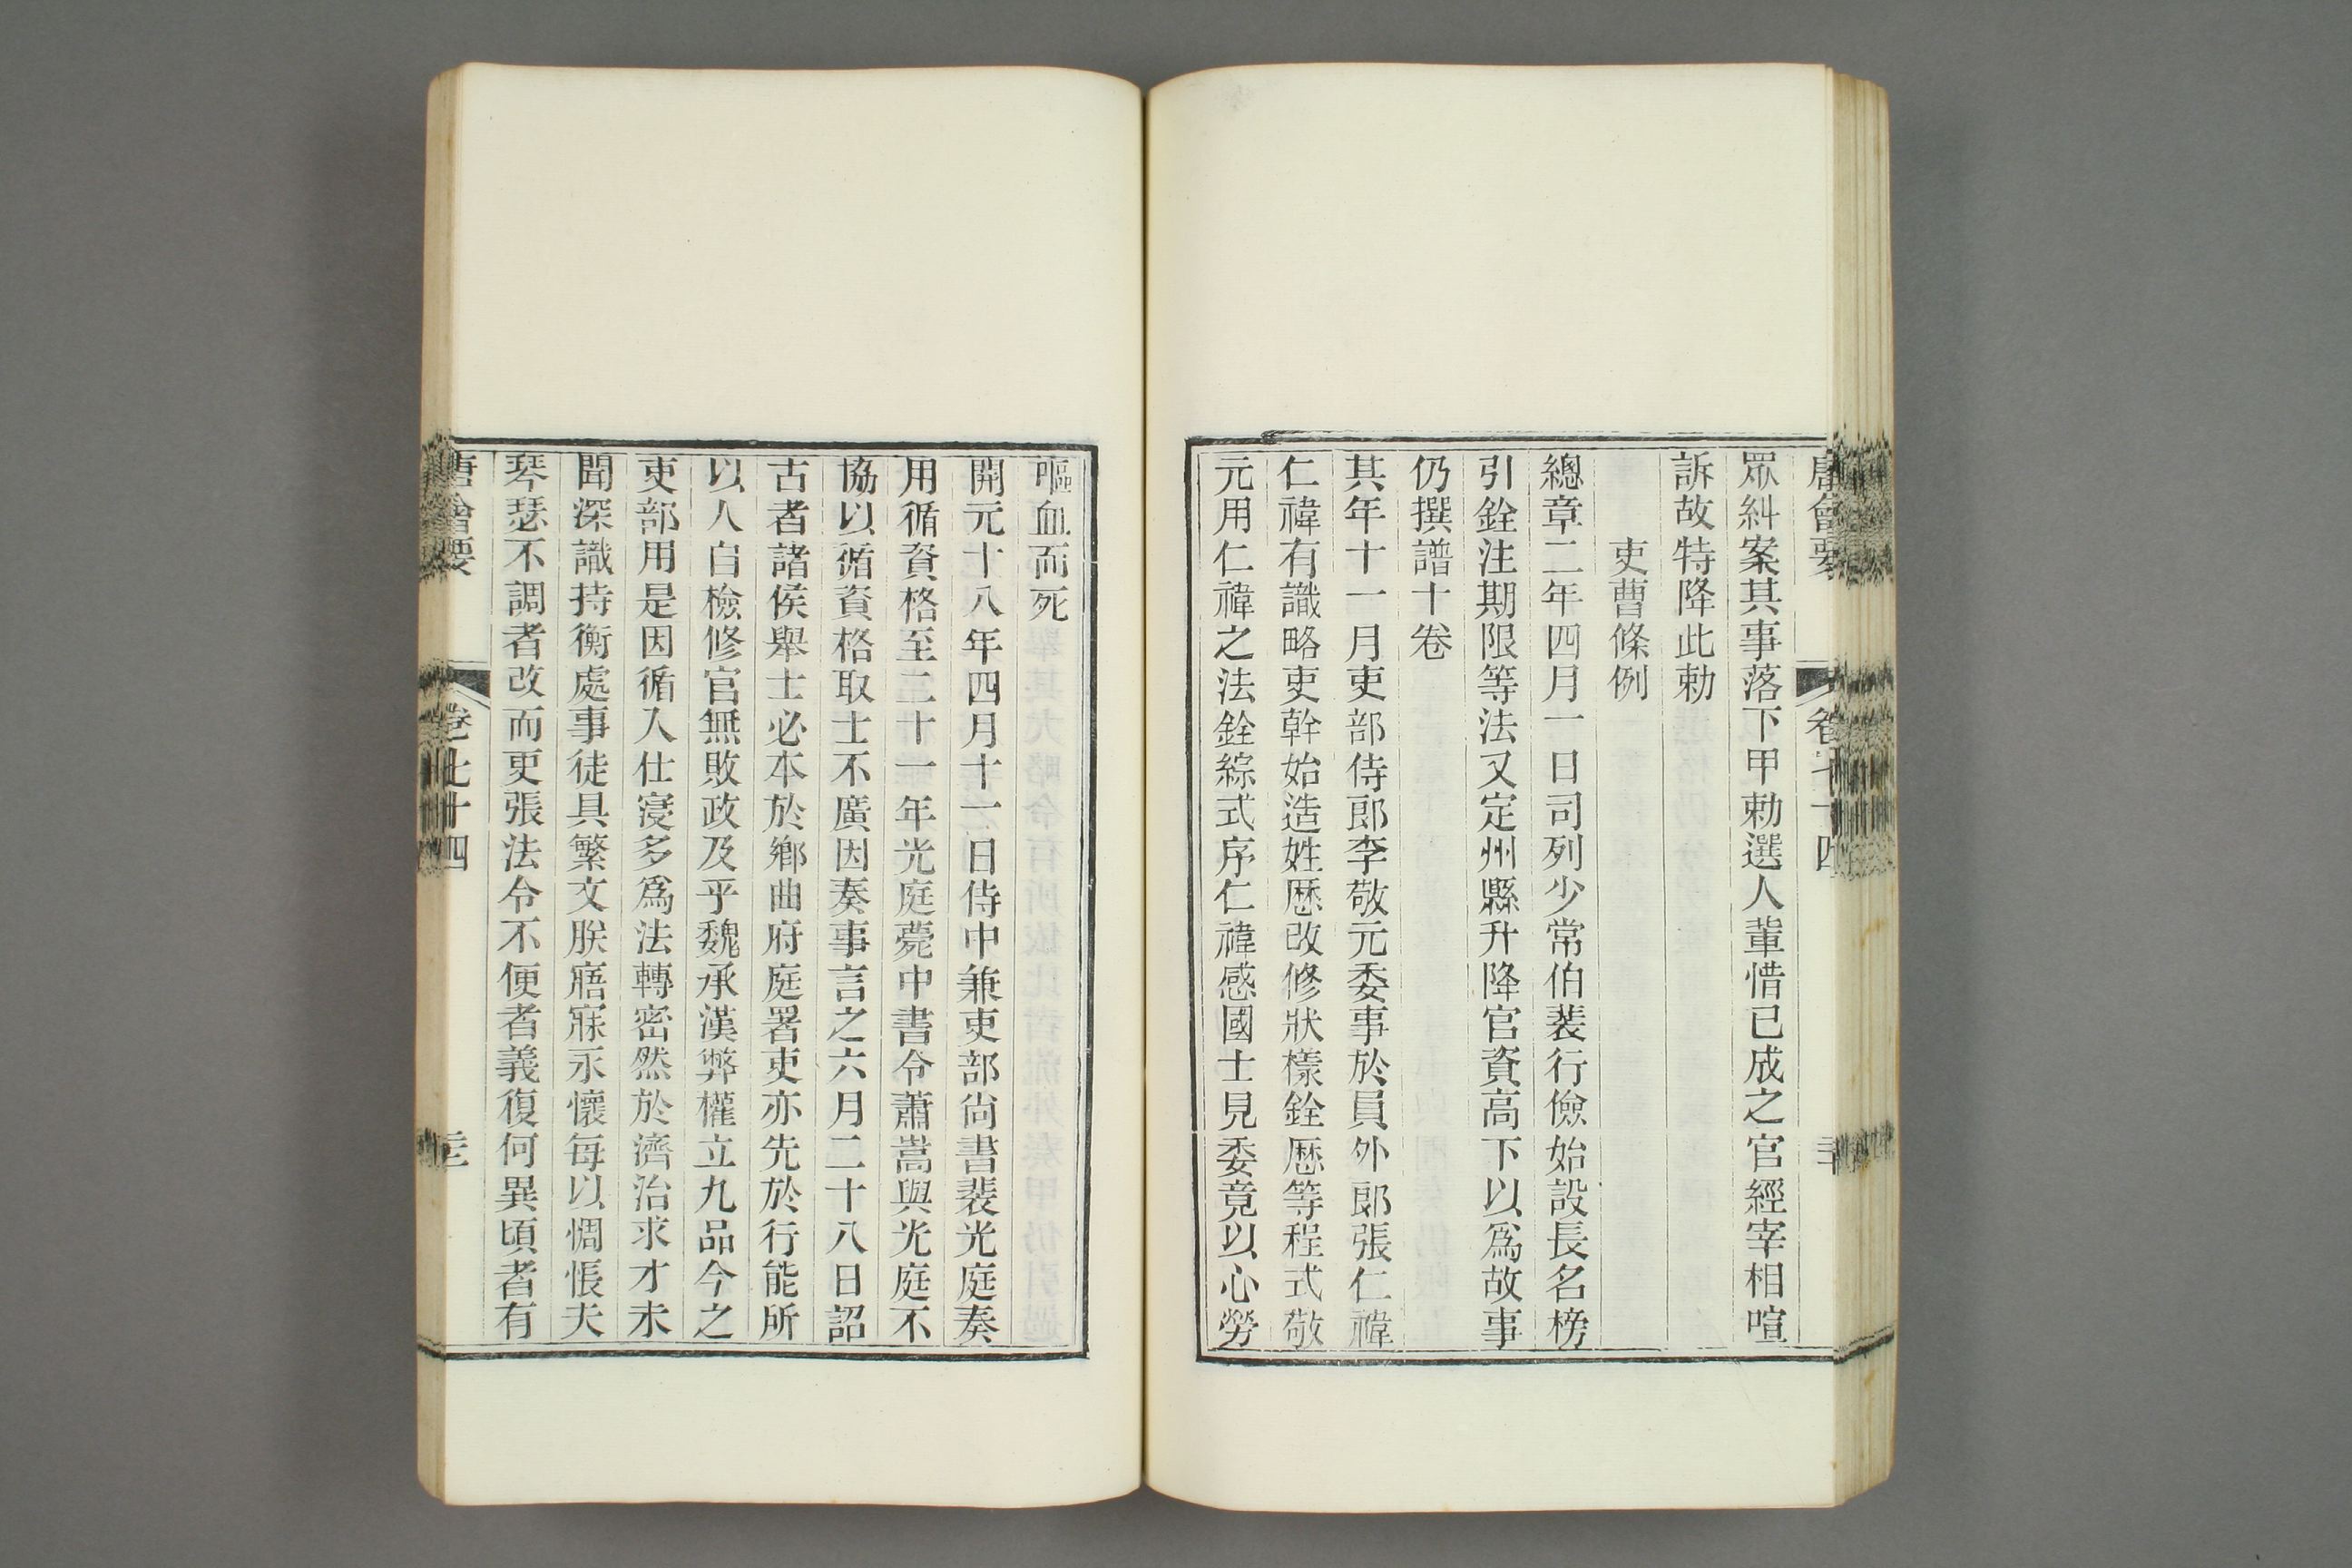 唐會要 卷七十四
眾糾案其事落下甲勅選人輩惜已成之官經宰相喧
訴故特降此勅
吏曹條例
總章二年四月一日司列少常伯裴行儉始設長名榜
引銓注期限等法又定州縣升降官資高下以為故事
仍撰譜十卷
其年十一月吏部侍郎李敬元委事於員外郎張仁禕
仁禕有識略吏幹始造姓歷改修狀樣銓歷等程式敬
元用仁禕之法銓綜式序仁禕感國士見委竟以心勞
嘔血而死
開元十八年四月十一日侍中兼吏部尚書裴光庭奏
用循資格至二十一年光庭薨中書令蕭嵩與光庭不
協以循資格取士不廣因奏事言之六月二十八日詔
古者諸侯舉士必本於鄉曲府庭署吏亦先於行能所
以人自檢修官無敗政及乎魏承漢弊權立九品今之
吏部用是因循入仕寖多為法轉密然於濟治求才未
聞深識持衡處事徒具繁文朕寤寐永懷每以惆悵夫
琴瑟不調者改而更張法令不便者義復何異頃者有
唐會要 卷七十四